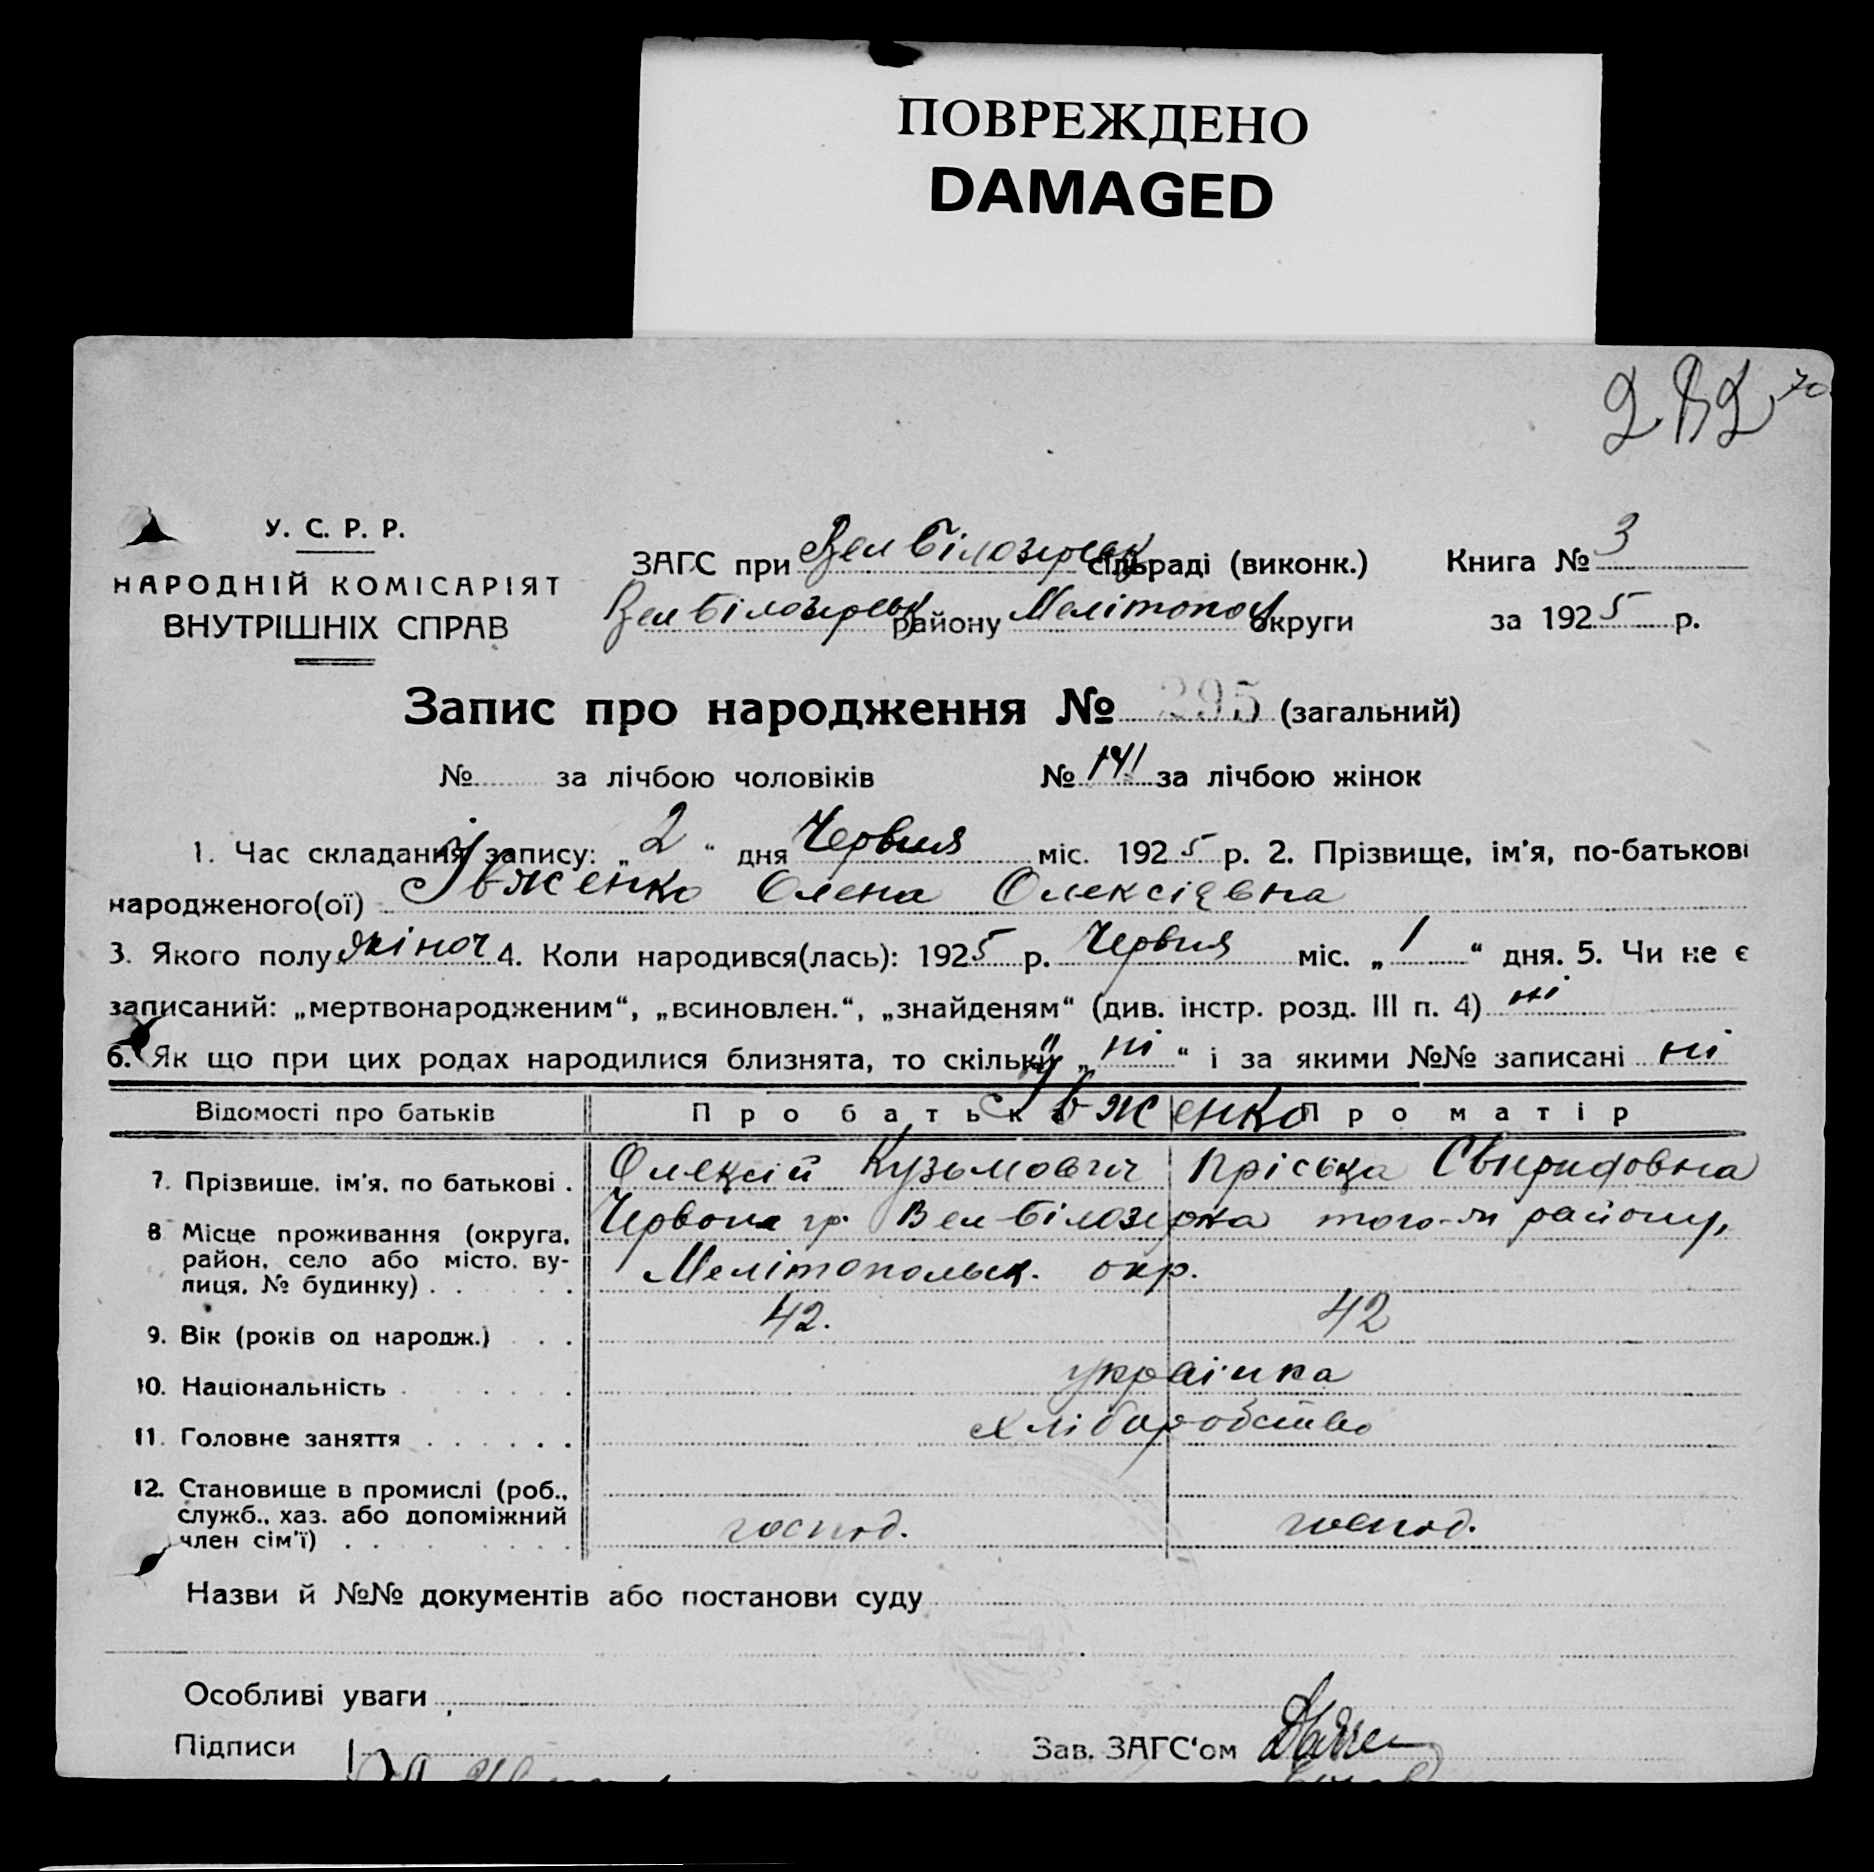 ПОВРЕЖДЕНО
DAMAGED
У. С. Р. Р.
НАРОДНІЙ КОМІСАРІЯТ
ВНУТРІШНІХ СПРАВ
ЗАГС при Вел Білозирськ сільраді (виконк.) Книга № 3
Вел Білозирськ району Мелітопол округи за 1925 р.
Запис про народження № 295 (загальний)
№ за лічбою чоловіків № 141 за лічбою жінок
1. Час складання запису: „ 2 “ дня Червня міс. 1925 р. 2. Прізвище, ім'я, по-батькові
народженого(ої) Івженко Олена Олексієвна
3. Якого полу жіноч 4. Коли народився(лась): 1925 р. Червня міс. „ 1 “ дня. 5. Чи не є
записаний: „мертвонародженим“, „всиновлен.“, „знайденям“ (див. інстр. розд. III п. 4) ні
6. Як що при цих родах народилися близнята, то скільки „ ні “ і за якими №№ записані ні
Відомості про батьків Про батька Про матір
Івженко
7. Прізвище, ім'я, по батькові . Олексій Кузьмович Пріська Свиридовна
8 Місце проживання (округа, район, село або місто, ву-лиця, № будинку) . Червона гр. Вел-Білозирка того-ж району,
Мелітопольськ. окр.
9. Вік (років од народж.) 42. 42
10. Національність українка
11. Головне заняття хліборобство
12. Становище в промислі (роб.,
служб., хаз. або допоміжний
член сім'ї) господ. господ.
Назви й №№ документів або постанови суду
Особливі уваги
Підписи Зав. ЗАГС'ом